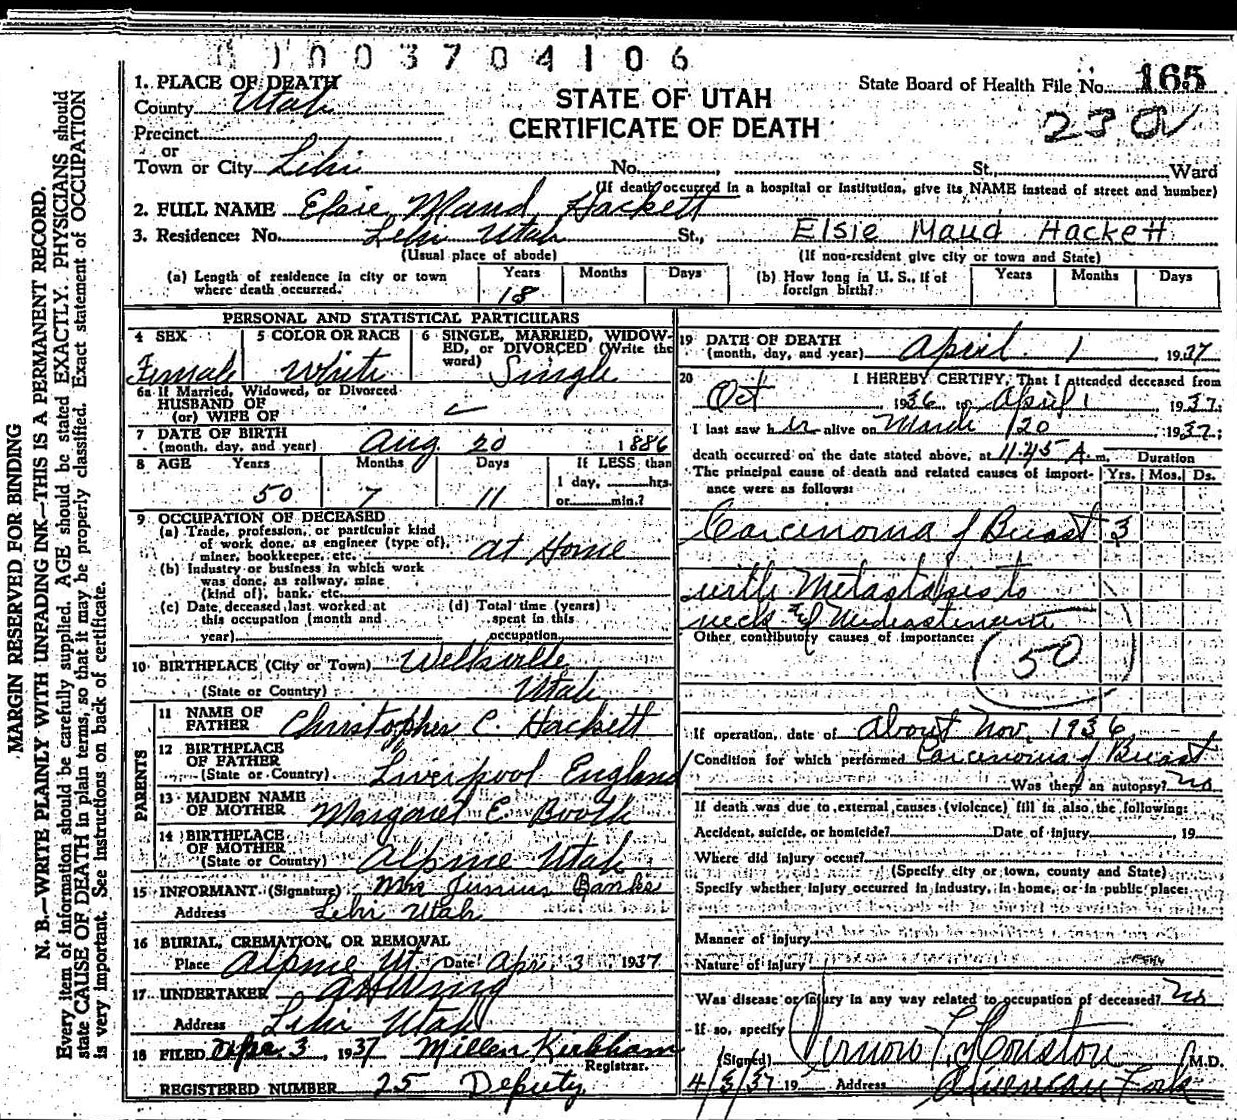 0 1 0 0 3 7 0 4 1 0 6
1. PLACE OF DEATH
County Utah
Precinct
or
Town or City Lehi No. St., Ward
(If death occurred in a hospital or institution, give its NAME instead of street and number)
STATE OF UTAH
CERTIFICATE OF DEATH
State Board of Health File No. 165
23a
2. FULL NAME Elsie Maud Hackett
3. Residence: No. Lehi Utah St., Elsie Maud Hackett
(Usual place of abode) (If non-resident give city or town and State)
(a) Length of residence in city or town where death occurred. Years 18 Months Days
(b) How long in U. S., if of foreign birth? Years Months Days
PERSONAL AND STATISTICAL PARTICULARS
4 SEX Female
5 COLOR OR RACE White
6 SINGLE, MARRIED, WIDOWED, or DIVORCED (Write the word) Single
6a If Married, Widowed, or Divorced
HUSBAND OF
(or) WIFE OF
7 DATE OF BIRTH
(month, day, and year) Aug. 20 1886
8 AGE Years 50 Months 7 Days 11
If LESS than
1 day, hrs.
or min.?
9 OCCUPATION OF DECEASED
(a) Trade, profession, or particular kind
of work done, as engineer (type of),
miner, bookkeeper, etc. at Home
(b) Industry or business in which work
was done, as railway, mine
(kind of), bank, etc.
(c) Date deceased last worked at
this occupation (month and
year)
(d) Total time (years)
spent in this
occupation
10 BIRTHPLACE (City or Town) Wellsville
(State or Country) Utah
PARENTS
11 NAME OF
FATHER Christopher C. Hackett
12 BIRTHPLACE
OF FATHER
(State or Country) Liverpool England
13 MAIDEN NAME
OF MOTHER Margaret E Booth
14 BIRTHPLACE
OF MOTHER
(State or Country) Alpine Utah
15 INFORMANT (Signature) Mrs Junius Banks
Address Lehi Utah
16 BURIAL, CREMATION, OR REMOVAL
Place Alpine Ut. Date Apr. 3 1937
17 UNDERTAKER
Address Lehi Utah
18 FILED Apr. 3, 1937 Millen Kirkham
Registrar.
REGISTERED NUMBER 25 Deputy
19 DATE OF DEATH
(month, day, and year) April 1 1937
20 I HEREBY CERTIFY, That I attended deceased from
Oct 1936 to April 1 1937
I last saw her alive on March 20 1937;
death occurred on the date stated above, at 11:45 A m. Duration
The principal cause of death and related causes of importance were as follows: Yrs. Mos. Ds.
Carcinoma of Breast 3
with Metastases to
neck & Mediastinum
Other contributory causes of importance:
50
If operation, date of About Nov. 1936
Condition for which performed Carcinoma of Breast
Was there an autopsy? no
If death was due to external causes (violence) fill in also the following:
Accident, suicide, or homicide? Date of injury 19
Where did injury occur?
(Specify city or town, county and State)
Specify whether injury occurred in industry, in home, or in public place:
Manner of injury
Nature of injury
Was disease or injury in any way related to occupation of deceased? no
If so, specify
(Signed) Vernon L. Houston M.D.
4/3/37 19 Address American Fork
MARGIN RESERVED FOR BINDING
N. B.—WRITE PLAINLY WITH UNFADING INK—THIS IS A PERMANENT RECORD.
Every item of information should be carefully supplied. AGE should be stated EXACTLY. PHYSICIANS should
state CAUSE OF DEATH in plain terms, so that it may be properly classified. Exact statement of OCCUPATION
is very important. See instructions on back of certificate.